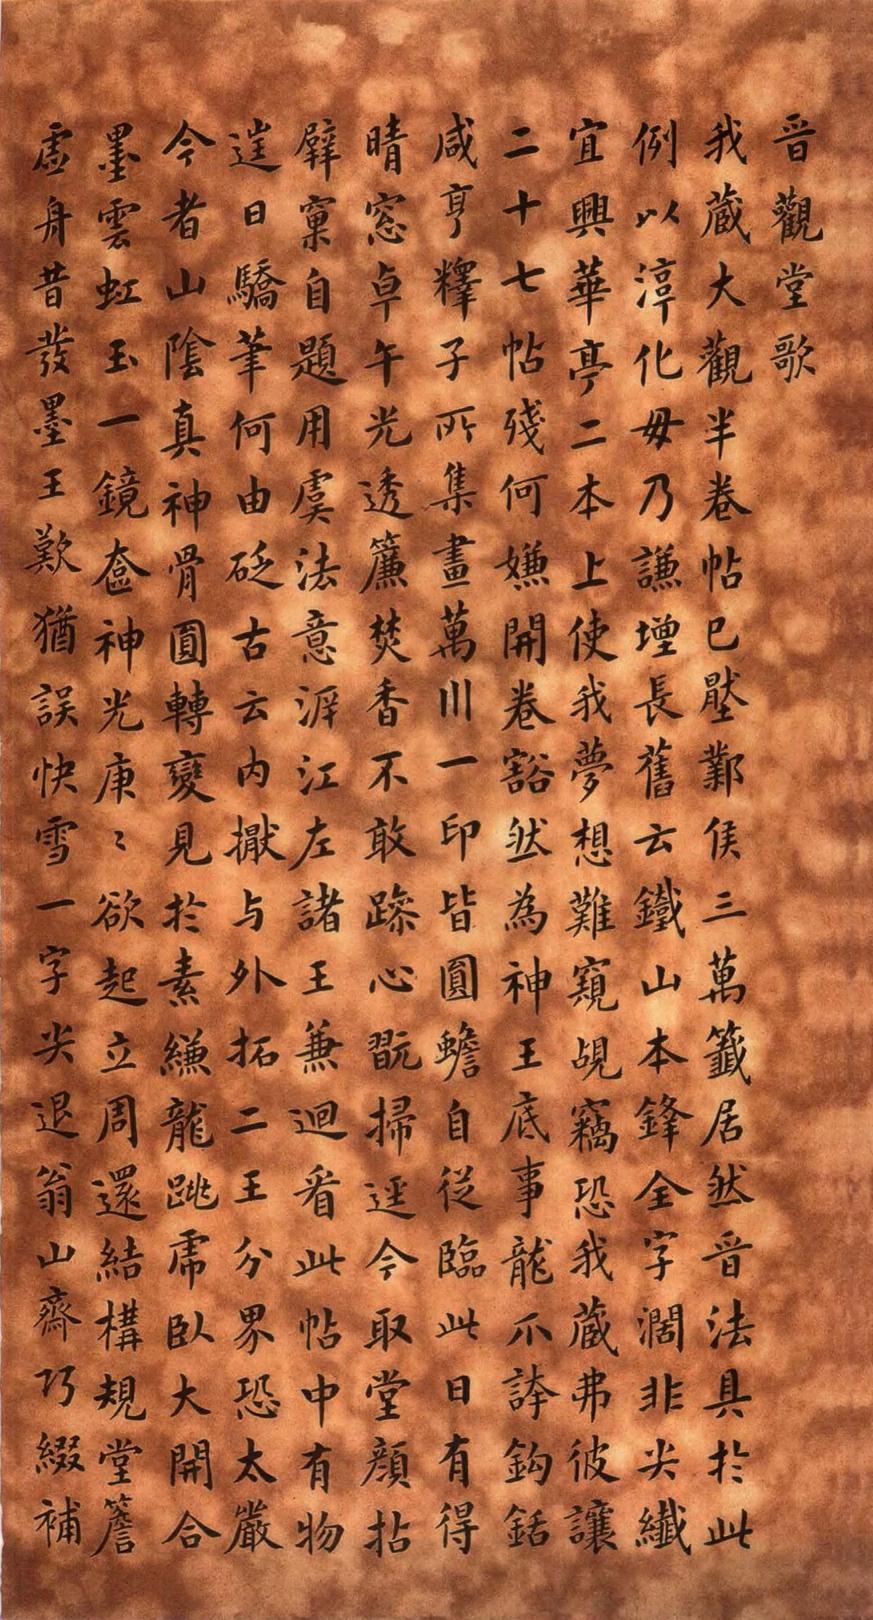 晉觀堂歌
我藏大觀半卷帖已壓鄴侯三萬籤居然晉法具於此
例以淳化毋乃謙增長舊云鐵山本鋒全字濶非尖纖
宜興華亭二本上使我夢想難窺覘竊恐我藏弗彼讓
二十七帖殘何嫌開卷豁然為神王底事龍爪誇鈎銛
咸亨釋子所集畫萬川一印皆圓蟾自從臨此日有得
晴窓卓午光透簾焚香不敢躁心翫掃逕今取堂顏拈
擘窠自題用虞法意涯江左諸王兼迴看此帖中有物
逆日驕筆何由砭古云内擫与外拓二王分界恐太嚴
今者山陰真神骨圓轉變見於素縑龍跳虎臥大開合
墨雲虹玉一鏡奩神光庚〻欲起立周還結構規堂簷
虛舟昔發墨王歎猶誤快雪一字尖退翁山齋巧綴補